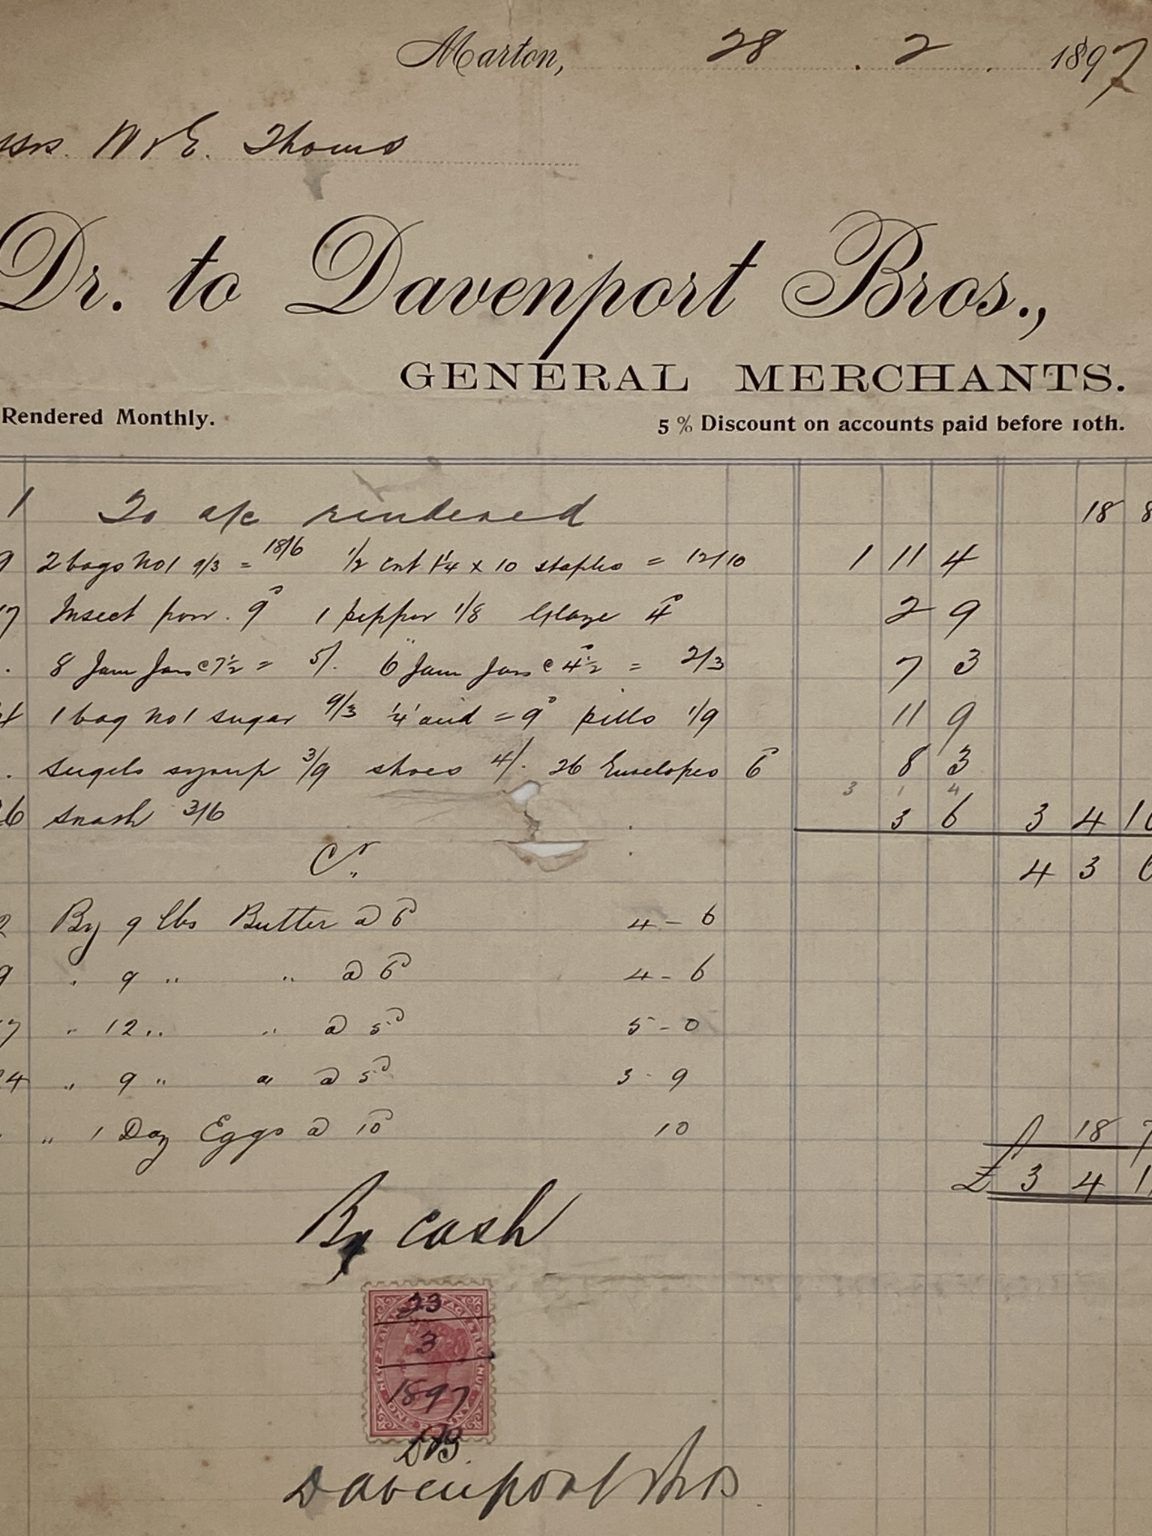 Marton, 28 . 2 . 1897
W & E. Thoms
Dr. to Davenport Bros.,
GENERAL MERCHANTS.
Rendered Monthly.
5 % Discount on accounts paid before 10th.
1 To a/c rendered 18 8
9 2 bags No 1 9/3 = 18/6 1/2 cwt 1 1/4 x 10 staples = 12/10 1 11 4
7 Insect pow. 9d 1 pepper 1/8 Glaze 4d 2 9
. 8 Jam Jars @ 7 1/2 = 5/. 6 Jam Jars @ 4 1/2 = 2/3 7 3
4 1 bag No 1 sugar 9/3 1/4 acid = 9d pills 1/9 11 9
. syrup 3/9 shoes 4/. 26 Envelopes 6d 8 3
3 1 4
26 3/6 3 6 3 4 10
Cr. 4 3 6
2 By 9 lbs Butter @ 6d 4 - 6
9 " 9 " " @ 6d 4 - 6
17 " 12 " " @ 5d 5 - 0
24 " 9 " " @ 5d 3 - 9
" 1 Doz Eggs @ 10d 10 18 7
£ 3 4 11
By cash
23
3
1897
DB
Davenport Bros